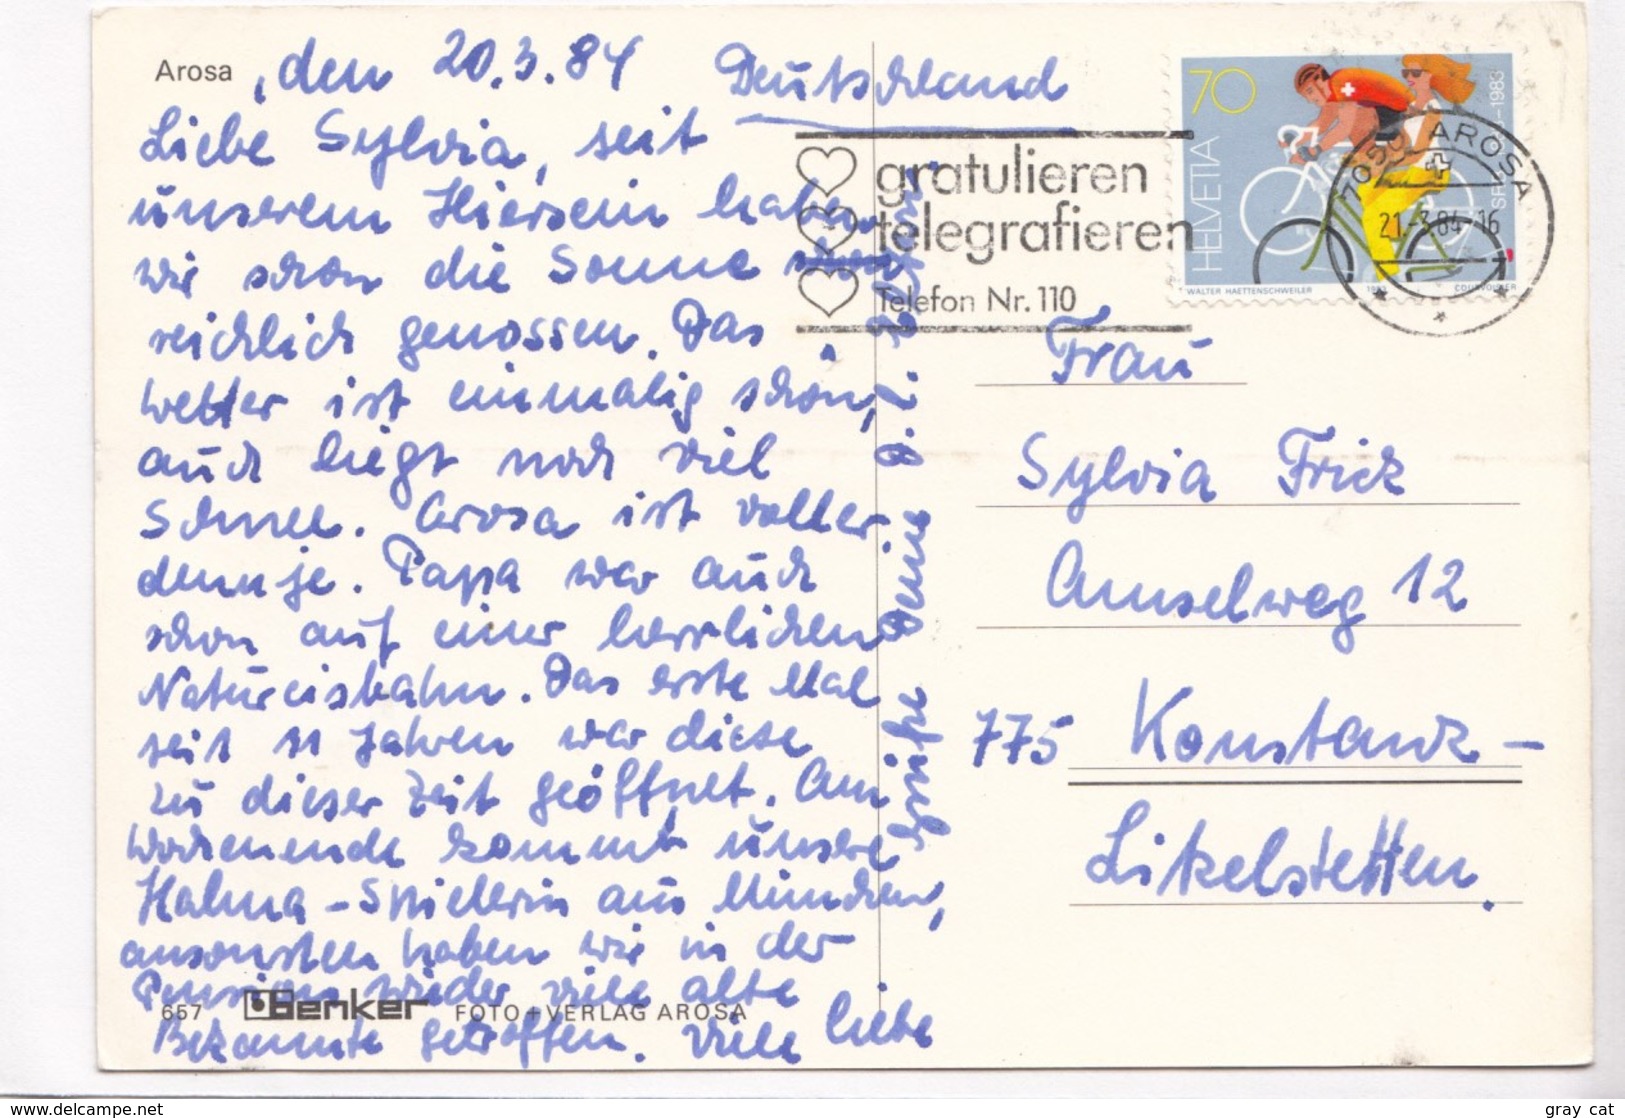 Arosa, den 20.3.84
Liebe Sylvia, seit
unserem Hiersein haben
wir schon die Sonne
reichlich genossen. Das
Wetter ist einmalig schön,
auch liegt noch viel
Schnee. Arosa ist voller
denn je. Papa war auch
schon auf einer herrlichen
Natureisbahn. Das erste Mal
seit 11 Jahren war diese
zu dieser Zeit geöffnet. Am
Wochenende kommt unsere
Halma-Spielerin aus München,
ansonsten haben wir in der
Pension wieder viele alte
Bekannte getroffen. Viele liebe
Grüße Deine
Deutschland
gratulieren
telegrafieren
Telefon Nr. 110
70
HELVETIA
1983
WALTER HAETTENSCHWEILER 1983 COURVOISIER
7050 AROSA
21.-3.84-16
Frau
Sylvia Frick
Amselweg 12
775 Konstanz-
Litzelstetten.
657 Benker FOTO+VERLAG AROSA
www.delcampe.net
gray_cat